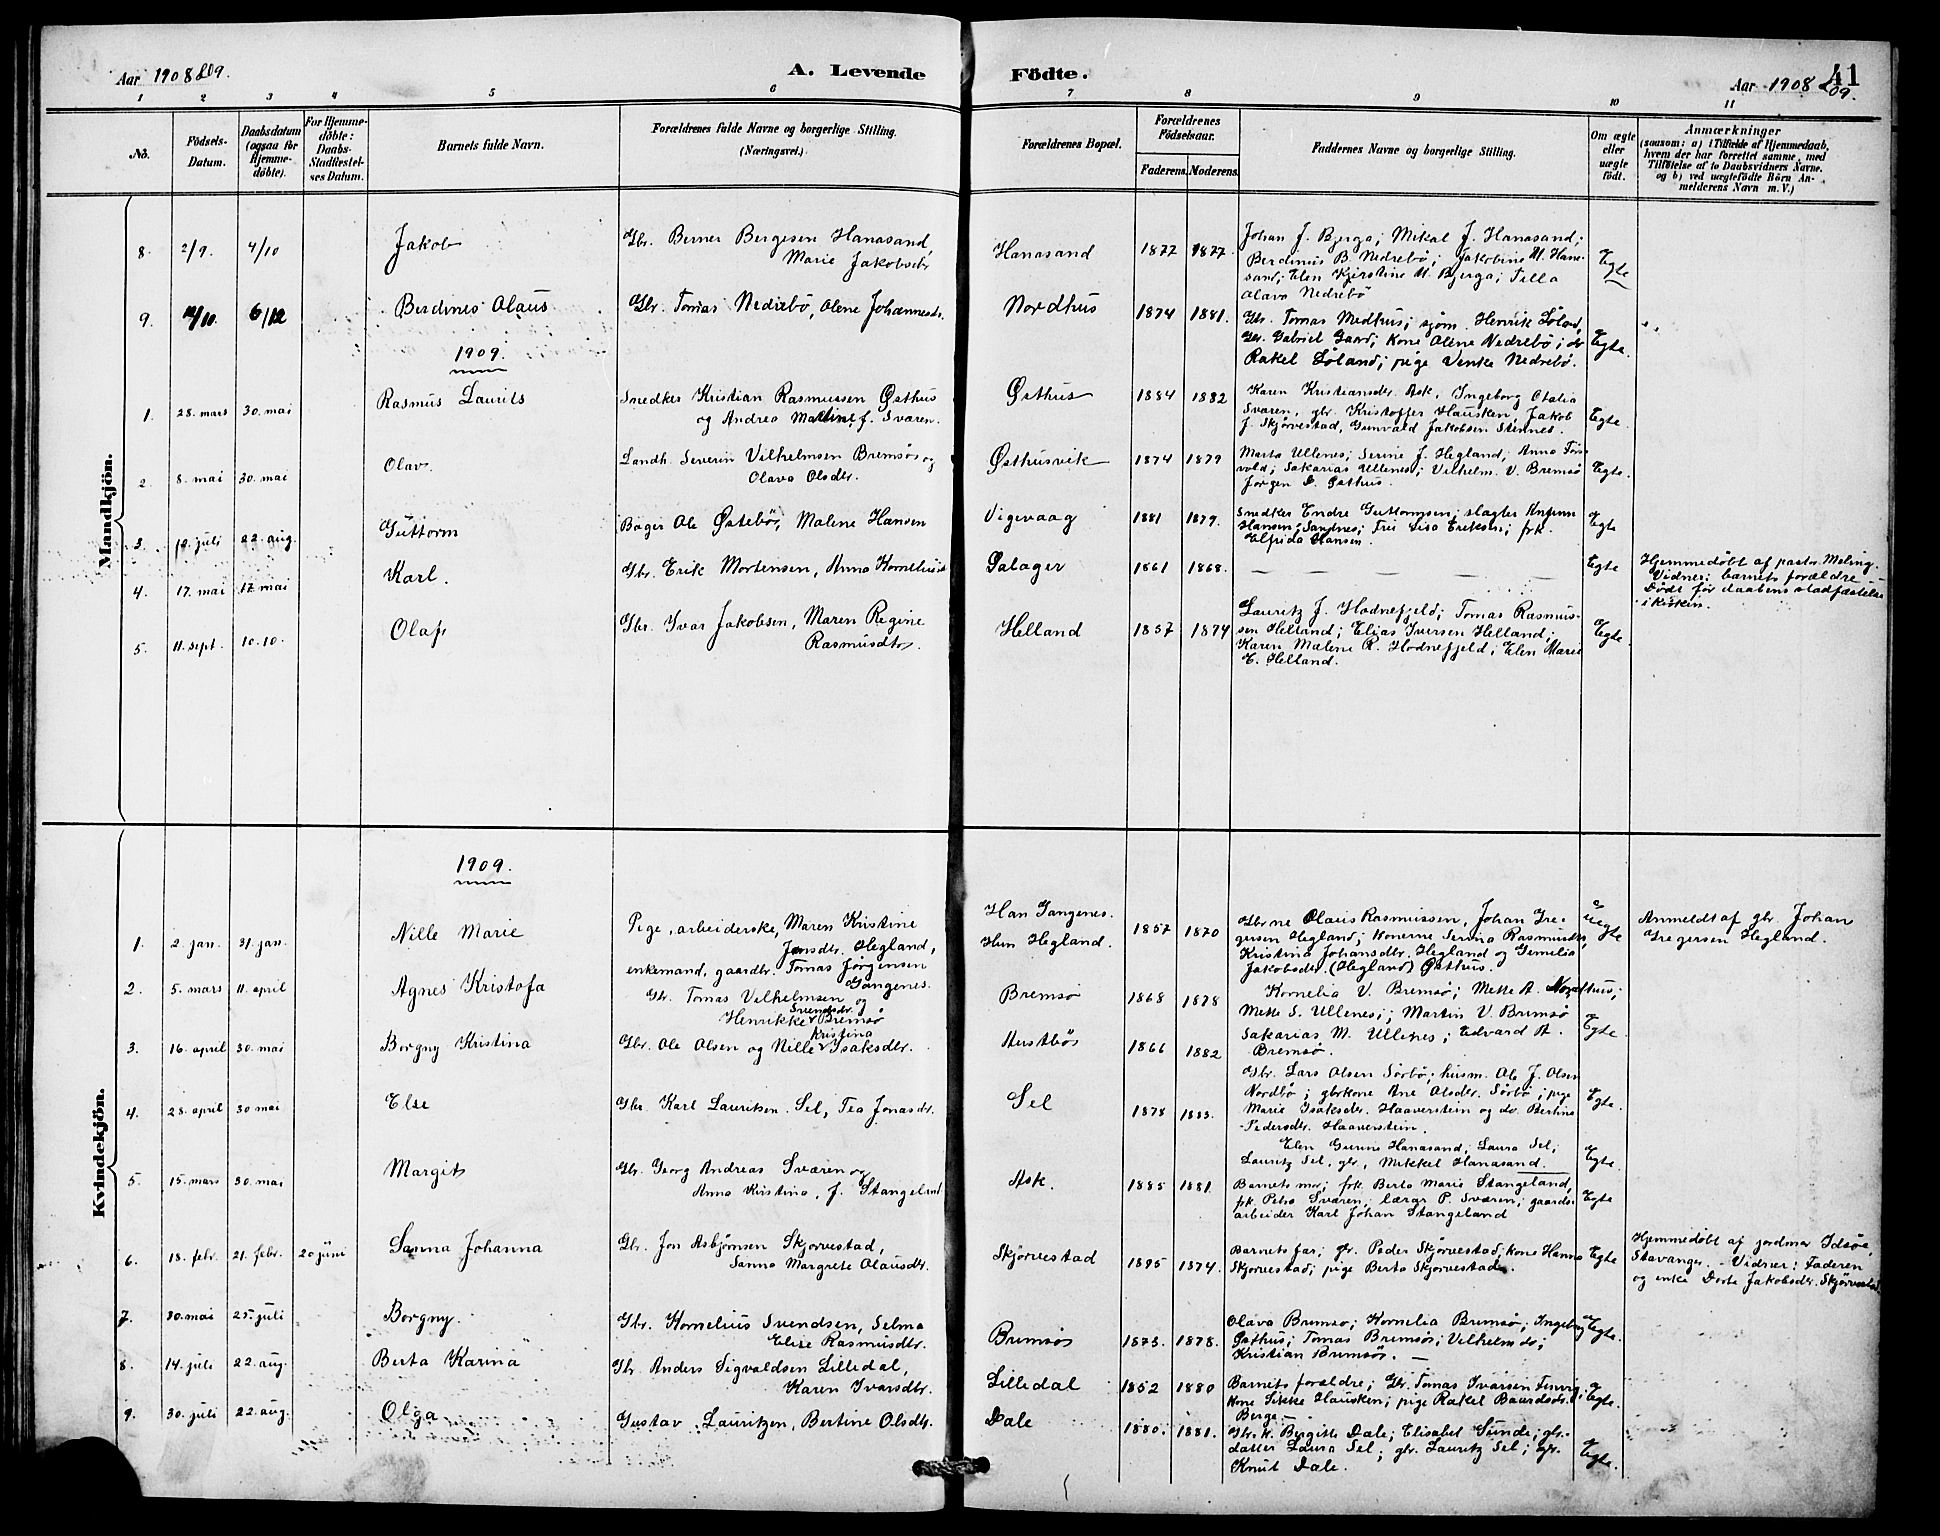 Aar 1908 & 09.
A. Levende
Födte.
Aar 1908 & 09.
41
1 2 3 4 5 6 7 8 9 10 11
No.
Födsels-
Datum.
Daabsdatum
(ogsaa for
Hjemme-
döbte).
For Hjemme-
döbte:
Daabs-
Stadfæstel-
ses Datum.
Barnets fulde Navn.
Forældrenes fulde Navne og borgerlige Stilling.
(Næringsvei.)
Forældrenes Bopæl.
Forældrenes
Födselsaar.
Faderens. Moderens.
Faddernes Navne og borgerlige Stilling.
Om ægte
eller
uægte
födt.
Anmærkninger
(saasom: a) i Tilfælde af Hjemmedaab,
hvem der har forrettet samme, med
Tilföielse af to Daabsvidners Navne.
og b) ved uægtefödte Börn An-
melderens Navn m. V.)
Mandkjön.
8. 2/9. 4/10 Jakob
Gbr. Berner Bergesen Hanasand,
Marie Jakobsdr.
Hanasand 1877 1877.
Johan J. Bjerga; Mikal J. Hanasand;
Berdinius B. Nedrebö; Jakobine M. Hana-
sand; Elen Kjerstine M. Bjerga; Tilla
Olava Nedrebö
Egte
9. 6/12 Berdines Olaus
Gbr. Tomas Nedrebö, Olene Johannesdr.
Nordhus 1874 1881.
Gbr. Tomas Medhus; sjöm. Henrik Söland,
Gbr. Gabriel Gaard; Kone Olene Nedrebö; do
Rakel Söland; pige Venke Nedrebö.
Egte.
1909.
1. 28. mars 30. mai Rasmus Laurits
Snedker Kristian Rasmussen Østhus
og Andrea Martine, f. Sværen.
Østhus 1884 1882
Karen Kristiansdr. Ask, Ingeborg Otalia
Sværen, gbr. Kristoffer Hausken, Jakob
J. Skjörvestad, Gunvald Jakobsen Stennes.
Egte.
2. 8. mai 30. mai Olav.
Landh. Severin Vilhelmsen Bremsö og
Olava Olsdtr.
Østhusvik 1874 1879
Marta Ullenes; Serine J. Hegland; Anna Tors-
vold; Sakarias Ullenes; Vilhelm V. Bremsö
Jörgen D. Østhus.
Egte.
3. juli 22. aug. Guttorm
Bager Ole Østebö, Malene Hansen
Vigevaag 1881 1879.
Snedker Endre Guttormsen; slagter
Hansen, Sandnes; Fru Lisa Eriksen; frk.
Elfrida Hansen.
Egte
4. 17. mai 17. mai Karl.
Gbr. Erik Mortensen, Anna Korneliusd.
Dalager 1861 1868.
— — — — —
Egte
Hjemmedöbt af pastor Meling.
Vidner: barnets forældre —
Döde för daabens stadfæstelse
i kirken.
5. 11. sept. 10. 10. Olaf
Gbr. Ivar Jakobsen, Maren Regine
Rasmusdtr.
Helland 1857 1874
Lauritz J. Hodnefjeld; Tomas Rasmus-
sen Helland; Elias Iversen Helland;
Karen Malene R. Hodnefjeld; Elen Marie
E. Helland.
Egte.
Kvindekjön.
1909.
1. 2. jan. 31. jan. Nille Marie
Pige, arbeiderske, Maren Kristine
Jonsdtr. Hegland,
enkemand, gaardbr. Tomas Jörgensen
Gangenes.
Han Gangenes.
Hun Hegland.
1857 1870
Gbrne Olaus Rasmussen, Johan Gre-
gersen Hegland; Konerne Serina Rasmusdtr,
Kristina Johansdtr. Hegland og Gemelia
Jakobsdtr. (Hegland) Østhus.
Uegte
Anmeldt af gbr. Johan
Gregersen Hegland.
2. 5. mars 11. april Agnes Kristofa
Gbr. Tomas Vilhelmsen og
Svendsdr.
Henrikke Bremsö
Bremsö 1868 1878
Kornelia V. Bremsö; Mette A. Nordhus;
Mette S. Ullenes; Martin V. Bremsö
Sakarias M. Ullenes; Edvard A.
Bremsö.
Egte.
3. 16. april 30. mai Borgny Kristina
Kristina
Gbr. Ole Olsen og Nille Isaksdtr.
Austbö 1866 1882
Gbr. Lars Olsen Sörbö; husm. Ole J. Olsen
Nordbö; gbrkone Ane Olsdtr. Sörbö; pige
Marie Isaksdtr. Haaverstein og do. Bertine
Pedersdtr. Haaverstein.
Egte.
4. 28. april 30 mai Else
Gbr. Karl Lauritsen Sel, Tea Jonasdr.
Sel 1878 1883.
Elen Gurine Hanasand, Laura Sel;
Lauritz Sel, gbr, Mikkel Hanasand.
Egte.
5. 15. mars 30. mai Margit
Gbr. Georg Andreas Sværen og
Anna Kristina, f. Stangeland
Ask. 1885 1881
Barnets mor; frk. Berta Marie Stangeland,
frk. Petra Sværen; lærer P. Sværen; gaards-
arbeider Karl Johan Stangeland
Egte
6. 18. febr. 21. febr. 20 juni Sanna Johanna
Gbr. Jon Asbjörnsen Skjorvestad,
Sanna Margrete Olausdtr.
Skjörvestad 1874.
Barnets far; gbr. Peder Skjörvestad, kone Hanna
Skjorvestad; pige Berta Skjorvestad.
Egte
Hjemmedöbt af jordmor Idsöe,
Stavanger. - Vidner: Faderen
og enke Dorte Jakobsdtr. Skjörvestad
7. 30. mai 25. juli Borgny.
Gbr. Kornelius Svendsen, Selma
Elise Rasmusdtr.
Bremsö 1873. 1878.
Olava Bremsö; Kornelia Bremsö; Ingeborg
Østhus; Tomas Bremsö; Vilhelm do;
Kristian Bremsö. —
Egte.
8. 14. juli 22. aug. Berta Karina
Gbr. Anders Sigvaldsen Lilledal,
Karen Ivarsdtr.
Lilledal 1852 1880
Barnets forældre; Gbr. Tomas Ivarsen
Kone Sikke Hausken; pige Rakel Baardsdtr.
Berge —
Egte.
9. 30. juli 22. aug. Olga
Gustav Lauritzen, Bertine Olsdtr.
Dale 1880. 1881.
Gbr. k. Bergitte Dale; Elisabet Sunde; gbr.
datter Laura Sel; gbr. Lauritz Sel; gbr.
Knut Dale.
Egte.